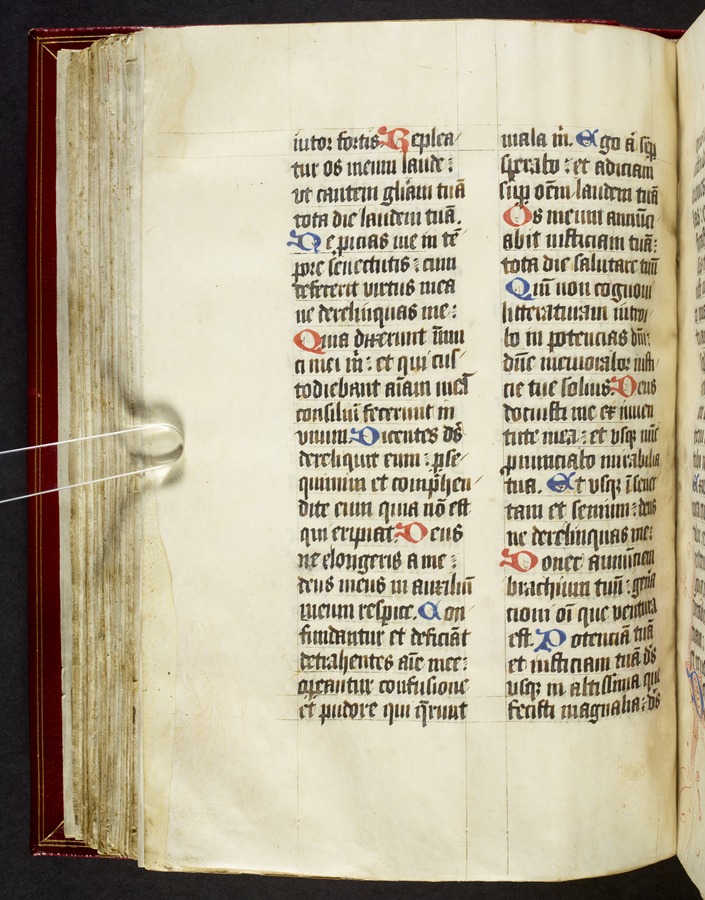 iutor fortis. Replea
tur os meum laude :
vt cantem gl̄iam tuā
tota die laudem tuā.
Ne p̱icias me in tē
pore senectutis : cum
defecerit virtus mea
ne derelinquas me :
Quia dixerunt inim̄
ci mei m̄ : et qui cus
todiebant aīam meā
consiliū fecerunt in
vnum. Dicentes ds̄
dereliquit eum : p̱se
quimini et comp̄hen
dite eum quia nō est
qui eripiat. Deus
ne elongeris a me :
deus meus in auxiliū
meum respice. Con
fundantur et deficiāt
detrahentes aīe mee :
operiantur confusione
et pudore qui q̄runt
mala m̄. Ego ā sēp
sperabo : et adiciam
sup̱ oēm laudem tuā
Os meum annūci
abit iusticiam tuā :
tota die salutare tuū
Qm̄ non cognoui
litteraturam introi
bo in potencias dn̄i
dn̄e memorabor iusti
cie tue solius. Deus
docuisti me ex iuuen
tute mea : et vsqꝫ nūc
pronunciabo mirabilia
tua. Et vsqꝫ ī senec
tam et senium : deus
ne derelinquas me :
Donec annūciem
brachium tuū : gen̄a
cioni oī que ventura
est. Potenciā tuā
et iusticiam tuā ds̄
vsqꝫ in altissima que
fecisti magnalia : ds̄